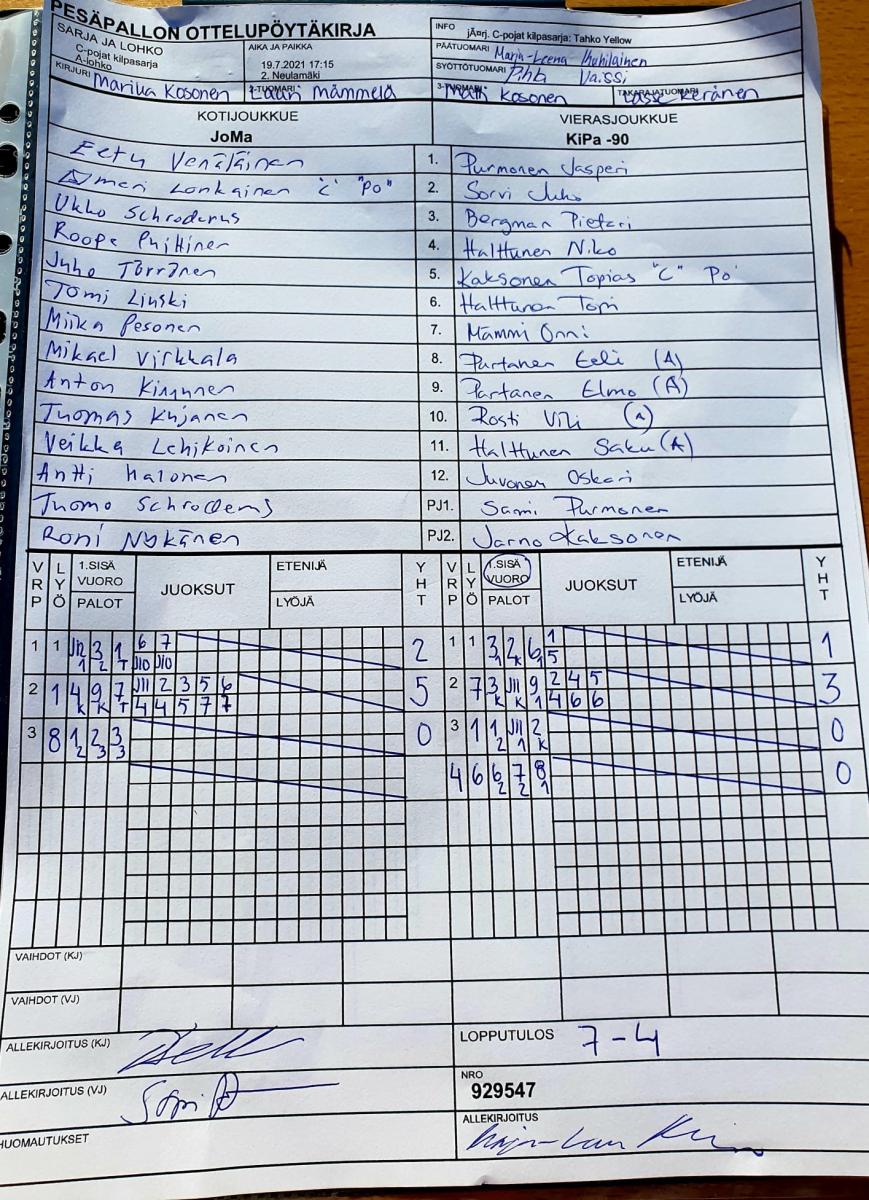 PESÄPALLON OTTELUPÖYTÄKIRJA
SARJA JA LOHKO
C-pojat kilpasarja
A-lohko
AIKA JA PAIKKA
19.7.2021 17:15
2. Neulamäki
INFO jÄ¤rj. C-pojat kilpasarja: Tahko Yellow
PÄÄTUOMARI Marja-Leena
SYÖTTÖTUOMARI
KIRJURI Kosonen
2-TUOMARI Mämmelä
3-TUOMARI Kosonen
TAKARAJATUOMARI Lasse Keränen
KOTIJOUKKUE
JoMa
VIERASJOUKKUE
KiPa -90
Eetu Venäläinen 1. Purmonen Jasperi
Lonkainen "C" "Po" 2. Sorvi Juho
Ukko Schroderus 3. Bergman Pietari
Roope 4. Halttunen Niko
Juho Törrönen 5. Kaksonen Topias "C" Po
Tomi Linski 6. Halttunen Topi
Miika Pesonen 7. Mämmi Onni
Mikael Virkkala 8. Partanen Eeli (A)
Anton Kinnunen 9. Partanen Elmo (A)
Tuomas Kujanen 10. Rosti Vili (A)
Veikka Lehikoinen 11. Halttunen Saku (A)
Antti Halonen 12. Juvonen Oskari
Tuomo PJ1. Sami Purmonen
Roni Nykänen PJ2. Jarno Kaksonen
VRP LYÖ 1.SISÄ VUORO PALOT JUOKSUT ETENIJÄ LYÖJÄ YHT
VRP LYÖ 1.SISÄ VUORO PALOT JUOKSUT ETENIJÄ LYÖJÄ YHT
1 1 J12 3 1 6 7 2 1 1 3 2 6 1 1
1 2 T J10 J10 1 K 1 5
2 1 4 9 7 J11 2 3 5 6 5 2 7 3 J11 9 2 4 5 3
K K T 4 4 5 7 7 K K 1 4 6 6
3 8 1 2 3 0 3 1 1 J11 2 0
2 3 3 2 1 K
4 6 6 7 8 0
2 2 1
VAIHDOT (KJ)
VAIHDOT (VJ)
ALLEKIRJOITUS (KJ)
LOPPUTULOS 7-4
ALLEKIRJOITUS (VJ)
NRO
929547
HUOMAUTUKSET
ALLEKIRJOITUS